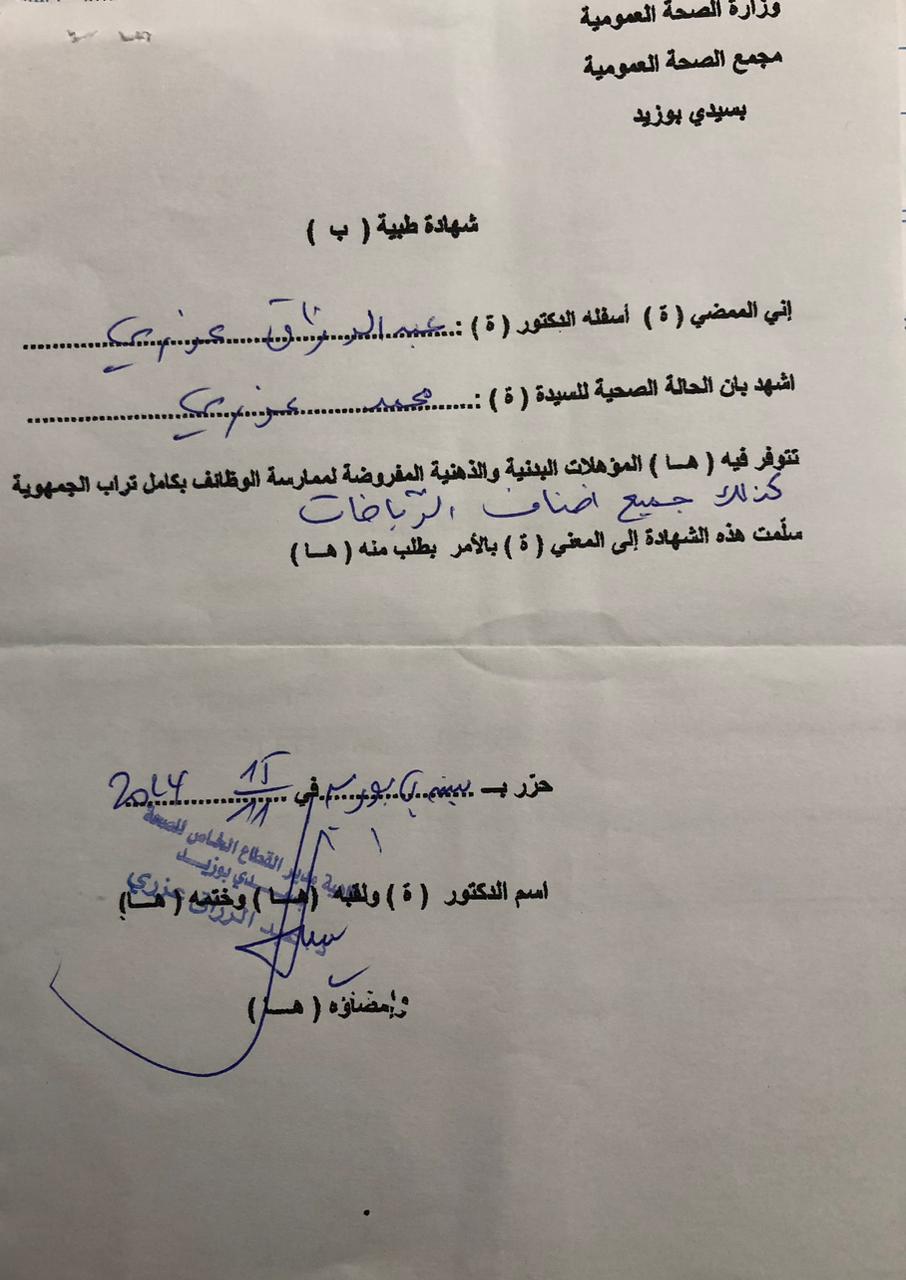 وزارة الصحة العمومية
مجمع الصحة العمومية
بسيدي بوزيد
شهادة طبية ( ب )
إني الممضي ( ة ) أسفله الدكتور ( ة ) : عبد الرزاق عزري
اشهد بان الحالة الصحية للسيدة ( ة ) : محمد عزري
تتوفر فيه ( هـا ) المؤهلات البدنية والذهنية المفروضة لممارسة الوظائف بكامل تراب الجمهوية
كذلك جميع اصناف الرياضات
سلّمت هذه الشهادة إلى المعني ( ة ) بالأمر بطلب منه ( هـا )
حرّر بـ سيدي بوزيد في 15/11 2024
مدير القطاع الخاص للصحة
سيدي بوزيد
عبد الرزاق عزري
اسم الدكتور ( ة ) ولقبه ( هـا ) وختمه ( هـا )
وإمضاؤه ( هـا )